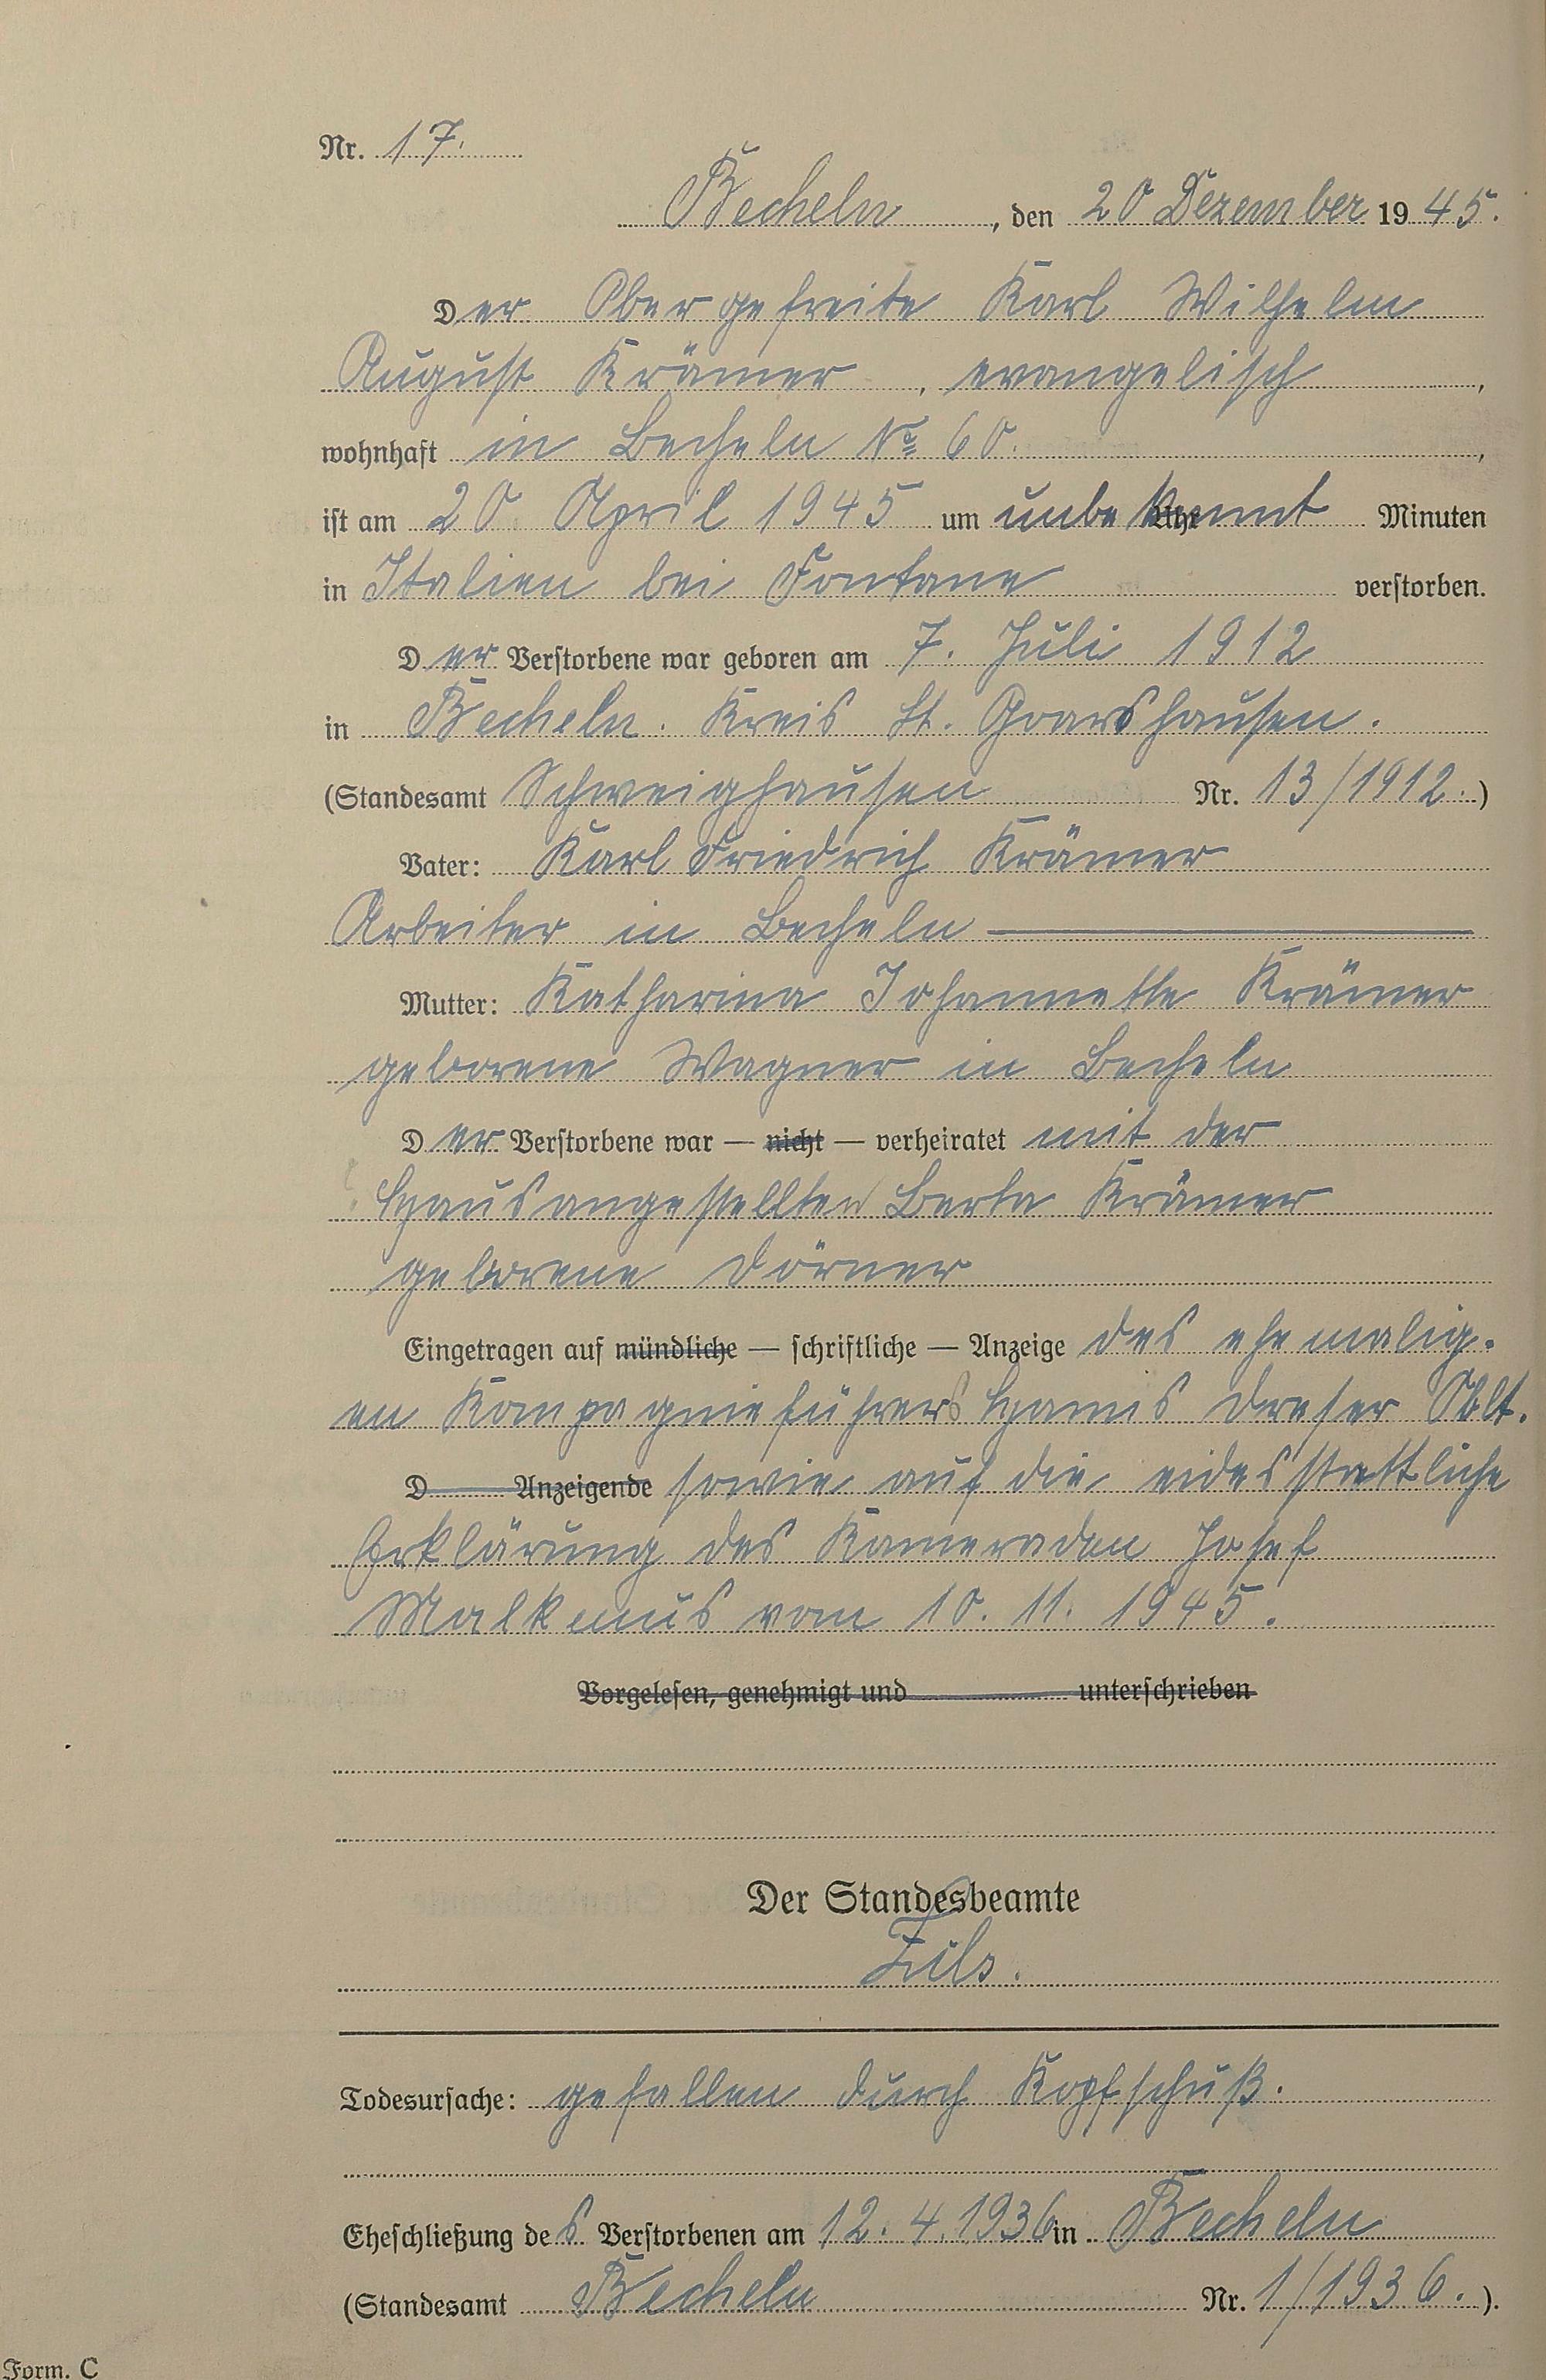 Nr. 17.
Becheln, den 20 Dezember 1945.
Der Obergefreite Karl Wilhelm
August Krämer, evangelisch,
wohnhaft in Becheln No 60.,
ist am 20 April 1945 um unbekannt Uhr Minuten
in Italien bei Fontane verstorben.
Der Verstorbene war geboren am 7. Juli 1912
in Becheln. Kreis St. Goarshausen.
(Standesamt Schweighausen Nr. 13/1912.)
Vater: Karl Friedrich Krämer
Arbeiter in Becheln
Mutter: Katharina Johannette Krämer
geborene Wagner in Becheln
Der Verstorbene war — nicht — verheiratet mit der
Hausangestellten Berta Krämer
geborene Dörner
Eingetragen auf mündliche — schriftliche — Anzeige des ehemalig.
en Kompagnieführers Hannis Dreser Oblt.
D Anzeigende sowie auf die eidesstattliche
Erklärung des Kameraden Josef
Malkmus vom 10. 11. 1945.
Vorgelesen, genehmigt und unterschrieben
Der Standesbeamte
Zils.
Todesursache: gefallen durch Kopfschuß.
Eheschließung des Verstorbenen am 12. 4. 1936 in Becheln
(Standesamt Becheln Nr. 1/1936.).
Form. C